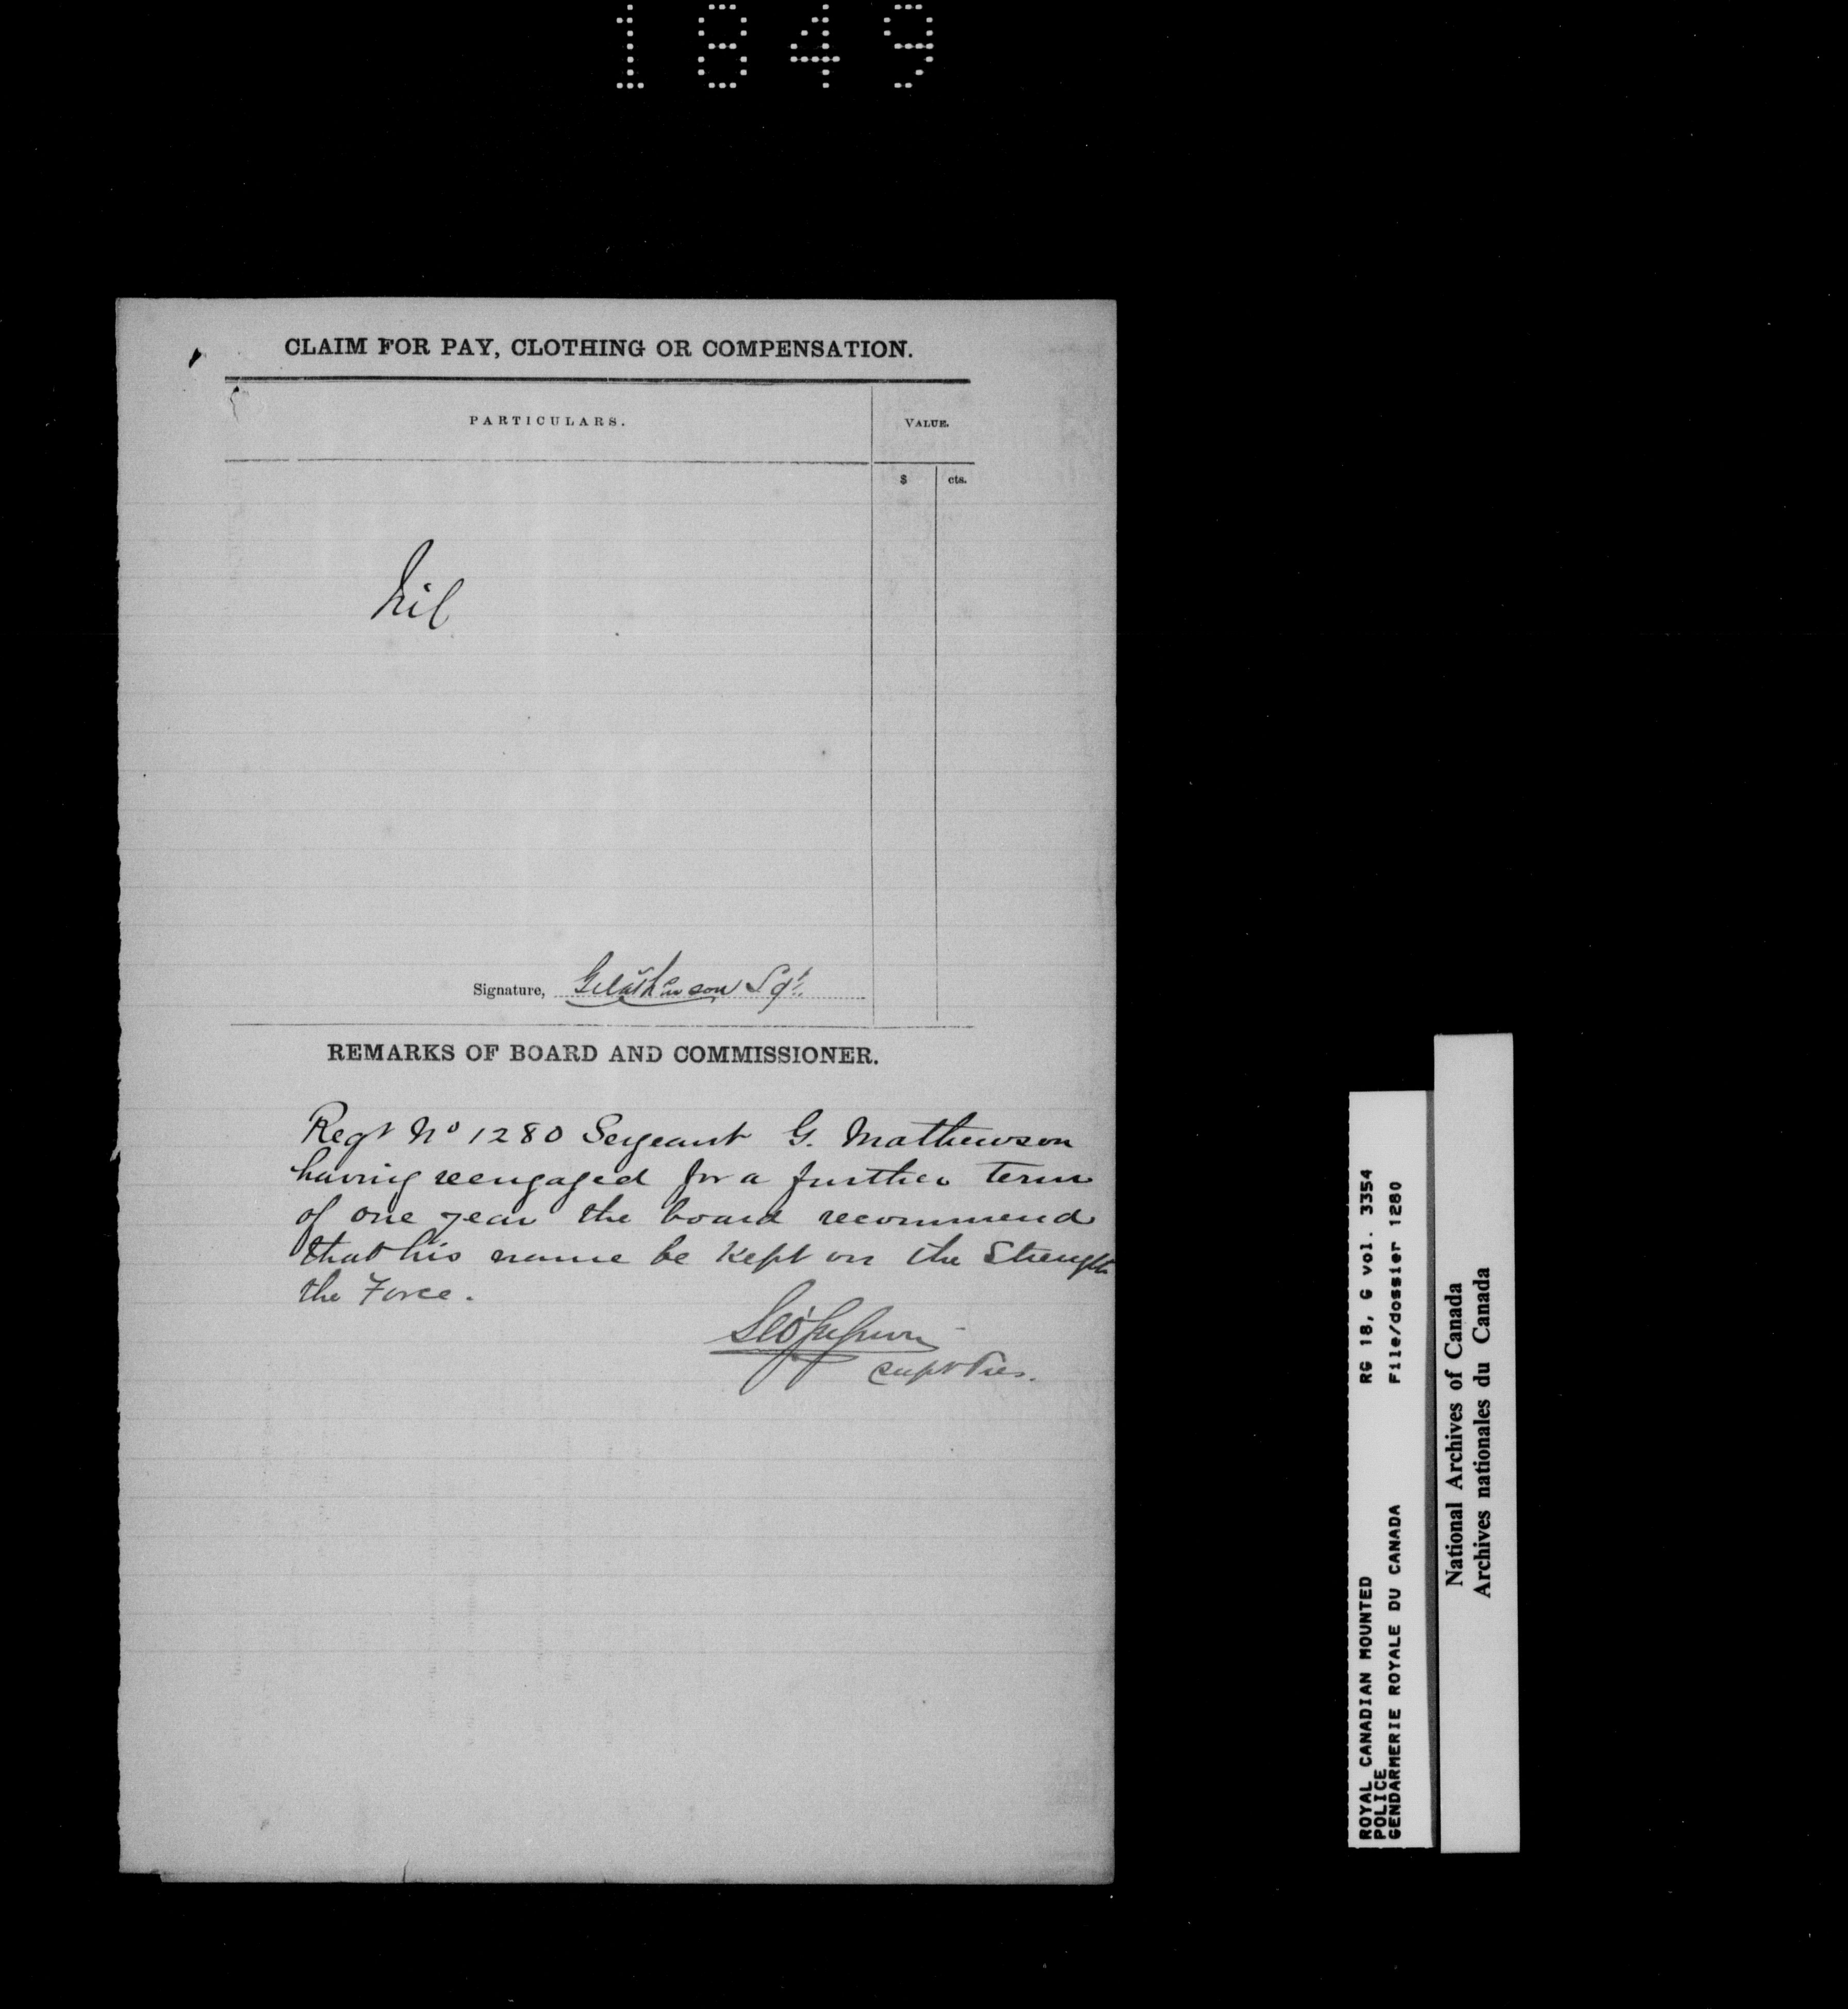 1849
CLAIM FOR PAY, CLOTHING OR COMPENSATION.
PARTICULARS.
VALUE.
$ cts.
Nil
Signature, G Mathewson Sgt.
REMARKS OF BOARD AND COMMISSIONER.
Regt No 1280 Sergeant G. Mathewson
having reengaged for a further term
of one year the board recommend
that his name be kept on the Strength
the Force.
Supt Pres.
ROYAL CANADIAN MOUNTED RG 18, G vol. 3354
POLICE File/dossier 1280
GENDARMERIE ROYALE DU CANADA
National Archives of Canada
Archives nationales du Canada